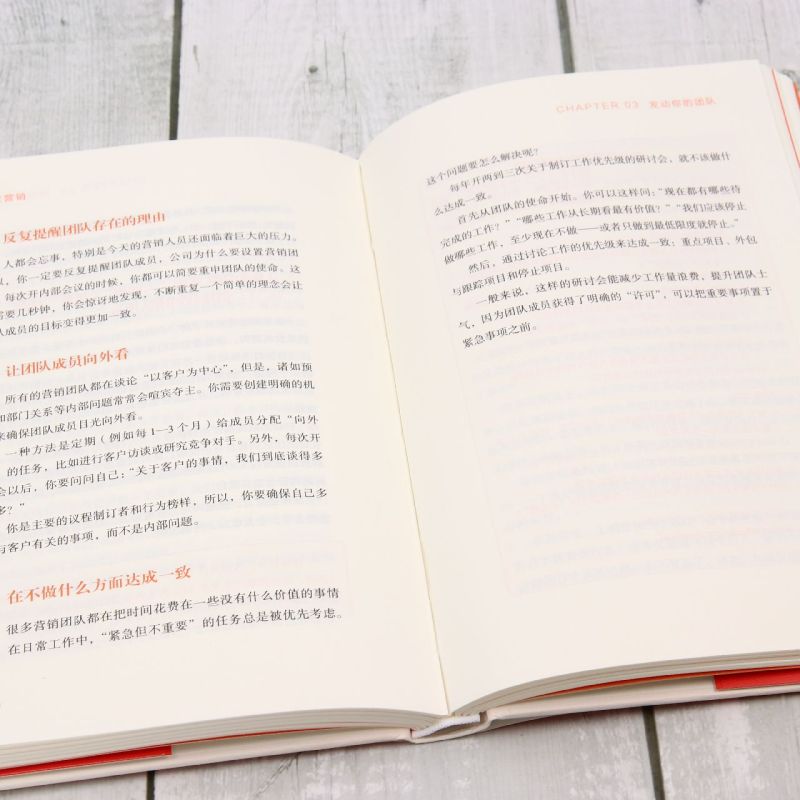 营销
反复提醒团队存在的理由
人都会忘事，特别是今天的营销人员还面临着巨大的压力。
以，你一定要反复提醒团队成员，公司为什么要设置营销团
每次开内部会议的时候，你都可以简要重申团队的使命。这
需要几秒钟，你会惊讶地发现，不断重复一个简单的理念会让
队成员的目标变得更加一致。
让团队成员向外看
所有的营销团队都在谈论“以客户为中心”，但是，诸如预
和部门关系等内部问题常常会喧宾夺主。你需要创建明确的机
来确保团队成员目光向外看。
一种方法是定期（例如每1—3个月）给成员分配“向外
的任务，比如进行客户访谈或研究竞争对手。另外，每次开
会以后，你要问问自己：“关于客户的事情，我们到底谈得多
多？”
你是主要的议程制订者和行为榜样，所以，你要确保自己多
与客户有关的事项，而不是内部问题。
在不做什么方面达成一致
很多营销团队都在把时间花费在一些没有什么价值的事情
在日常工作中，“紧急但不重要”的任务总是被优先考虑。
CHAPTER 03 发动你的团队
这个问题要怎么解决呢？
每年开两到三次关于制订工作优先级的研讨会，就不该做什
么达成一致。
首先从团队的使命开始。你可以这样问：“现在都有哪些待
完成的工作？”“哪些工作从长期看最有价值？”“我们应该停止
做哪些工作，至少现在不做——或者只做到最低限度就停止。”
然后，通过讨论工作的优先级来达成一致：重点项目、外包
与跟踪项目和停止项目。
一般来说，这样的研讨会能减少工作量浪费，提升团队士
气，因为团队成员获得了明确的“许可”，可以把重要事项置于
紧急事项之前。